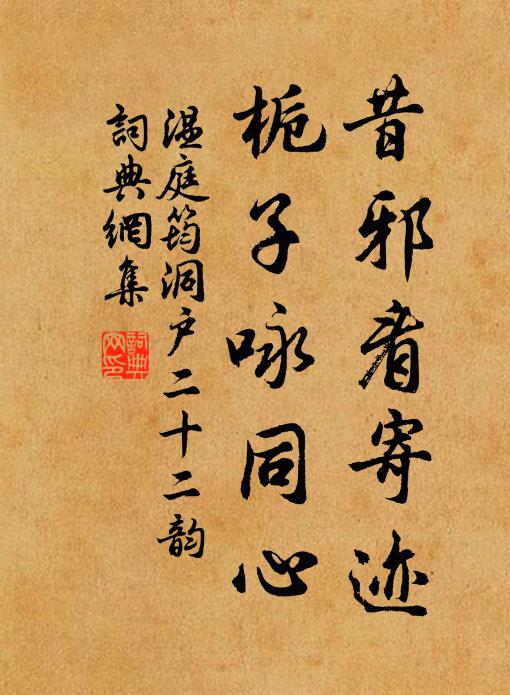 昔邪看寄迹
栀子咏同心
温庭筠洞户二十二韵
詞典網集
詞典
网印